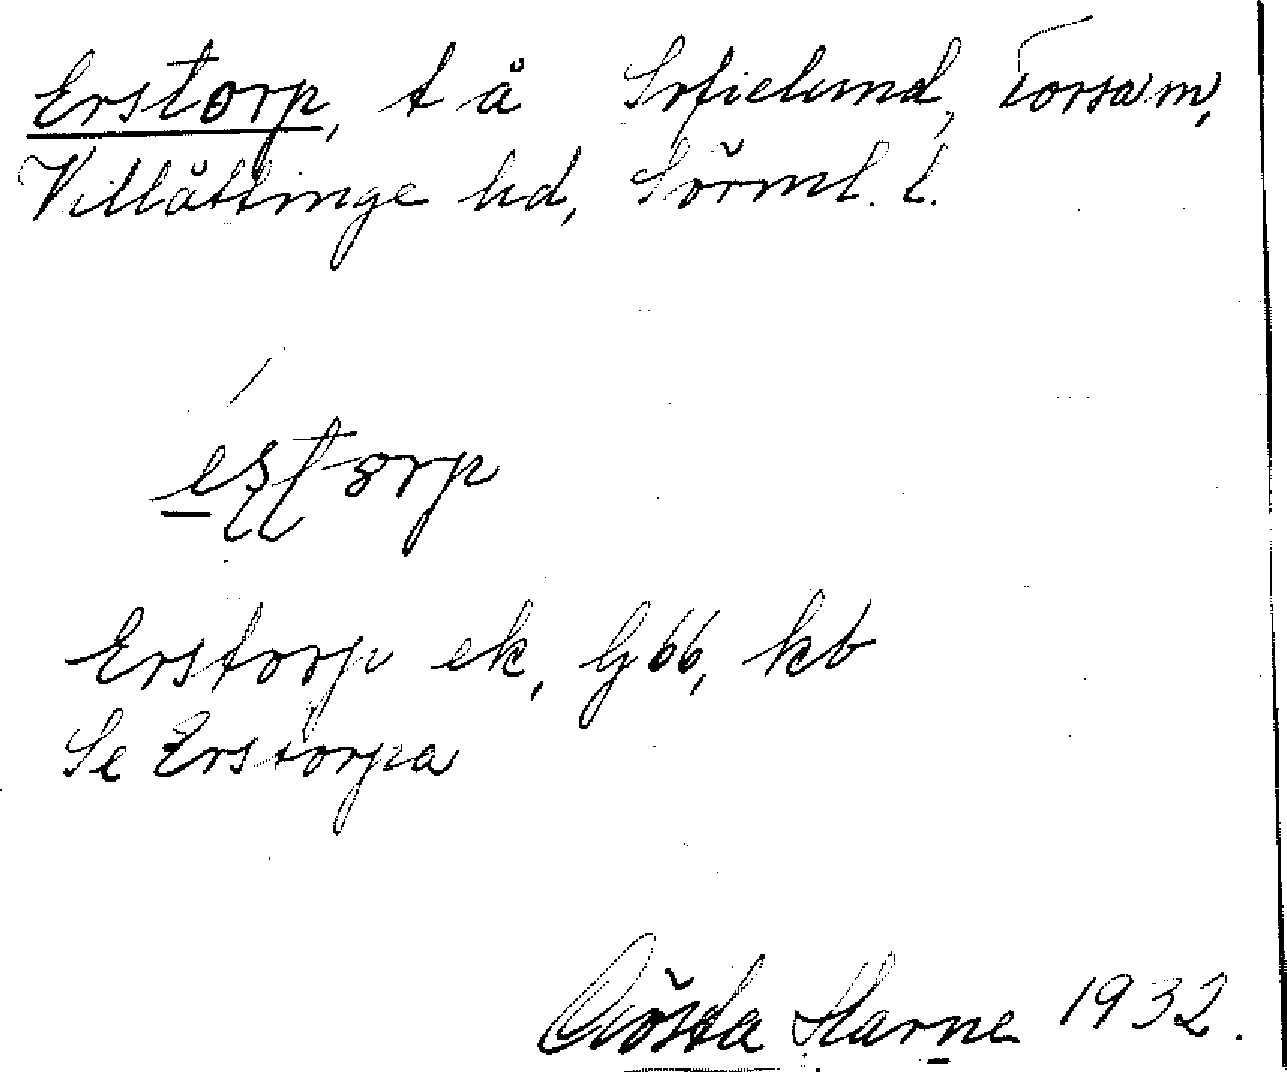 Erstorp, t å Sofielund, Forssa sn,
Villåttinge hd, Sörml. l.
Erstorp ek, G 66, kb
Se Erstorpa
Gösta Harne 1932.